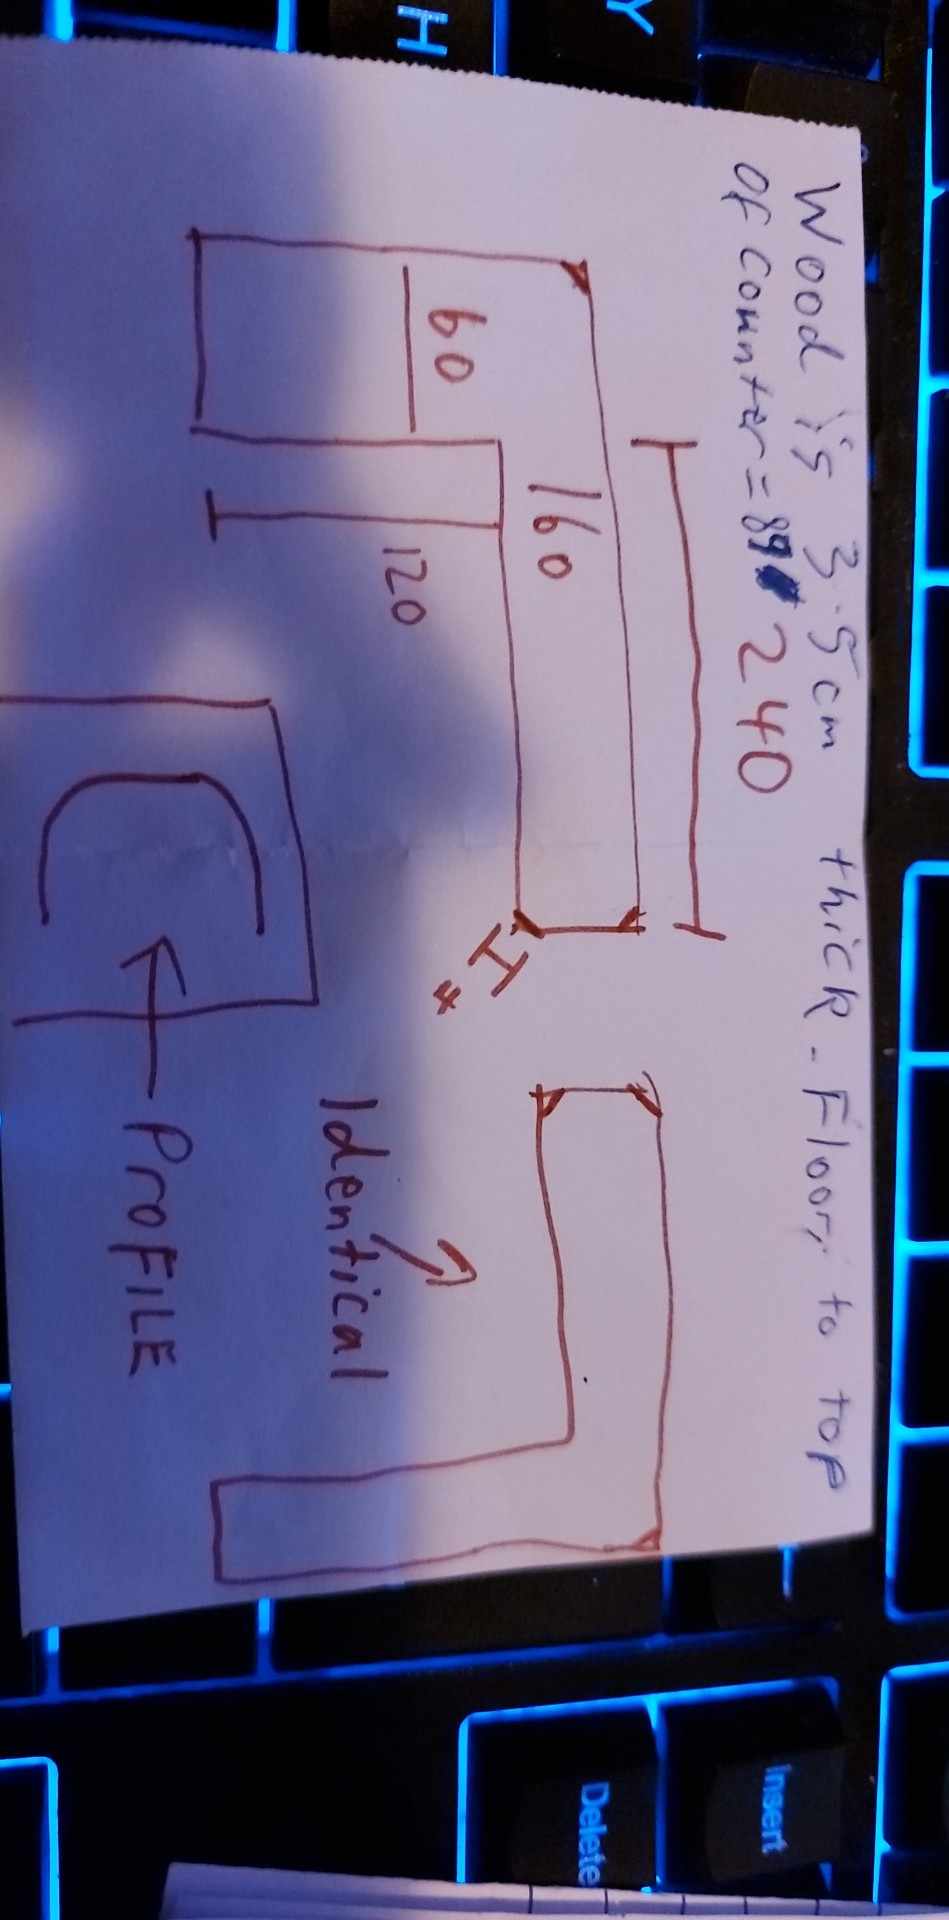 Wood is 3.5cm thick - Floor, to top
of counter = 89
240
160
60
120
*
Identical
ProFILE
Y
H
Insert
Delete